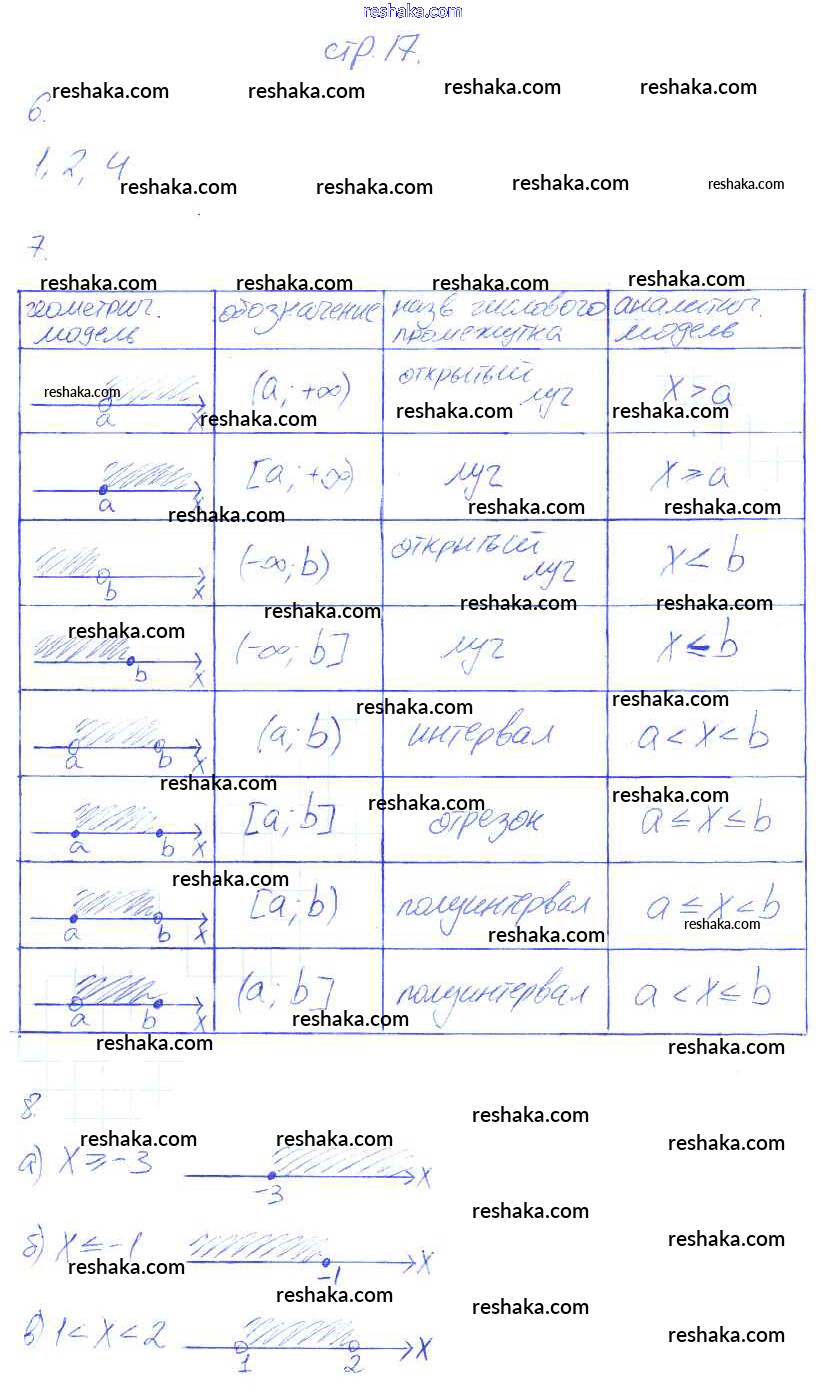 reshaka.com
стр. 17.
reshaka.com reshaka.com reshaka.com reshaka.com
6.
1, 2, 4
reshaka.com reshaka.com reshaka.com reshaka.com
7.
reshaka.com reshaka.com reshaka.com reshaka.com
геометрич. модель обозначение назв числового промежутка аналитич. модель
reshaka.com
a x (a; +∞) открытый луч x > a
reshaka.com reshaka.com reshaka.com
a x [a; +∞) луч x ≥ a
reshaka.com reshaka.com reshaka.com
b x (-∞; b) открытый луч x < b
reshaka.com reshaka.com reshaka.com
reshaka.com
b x (-∞; b] луч x ≤ b
reshaka.com reshaka.com
a b x (a; b) интервал a < x < b
reshaka.com reshaka.com reshaka.com
a b x [a; b] отрезок a ≤ x ≤ b
reshaka.com
a b x [a; b) полуинтервал a ≤ x < b
reshaka.com reshaka.com
a b x (a; b] полуинтервал a < x ≤ b
reshaka.com
reshaka.com reshaka.com
8.
reshaka.com
reshaka.com reshaka.com reshaka.com
а) x ≥ -3 -3 x
reshaka.com
reshaka.com
б) x ≤ -1 -1 x
reshaka.com
reshaka.com reshaka.com
reshaka.com
в) 1 < x < 2 1 2 x